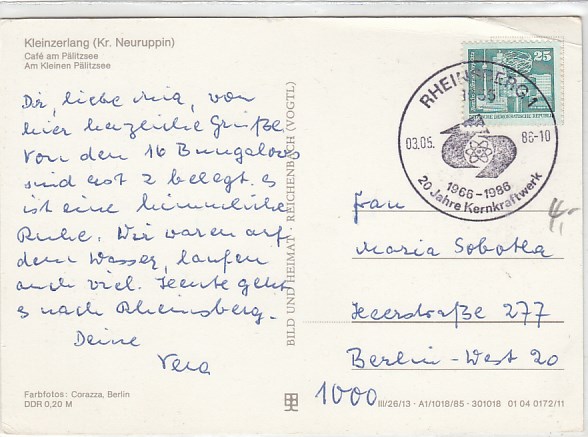 Kleinzerlang (Kr. Neuruppin)
Café am Pälitzsee
Am Kleinen Pälitzsee
Dir, liebe Mia, von
hier herzliche Grüße.
Von den 16 Bungalows
sind erst 2 belegt. es
ist eine himmlische
Ruhe. Wir waren auf
dem Wasser, laufen
auch viel. Heute geht
es nach Rheinsberg.
Deine
Vera
Farbfotos: Corazza, Berlin
DDR 0,20 M
BILD UND HEIMAT · REICHENBACH (VOGTL)
25
DEMOKRATISCHE REPUBLIK
RHEINSBERG 1
03.05. 86-10
1966-1986
20 Jahre Kernkraftwerk
4,-
Frau
Maria Sobotka
Heerstraße 277
Berlin-West 20
1000
III/26/13 · A1/1018/85 · 301018 01 04 0172/11